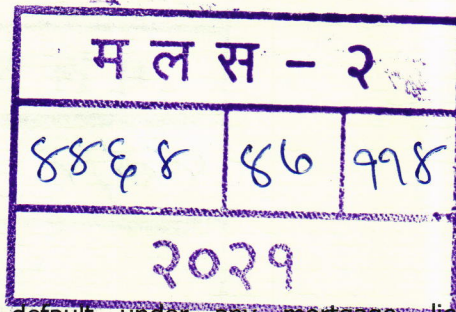 म ल स - २
४४६४ ४७ ११४
२०२१
default under any mortgage